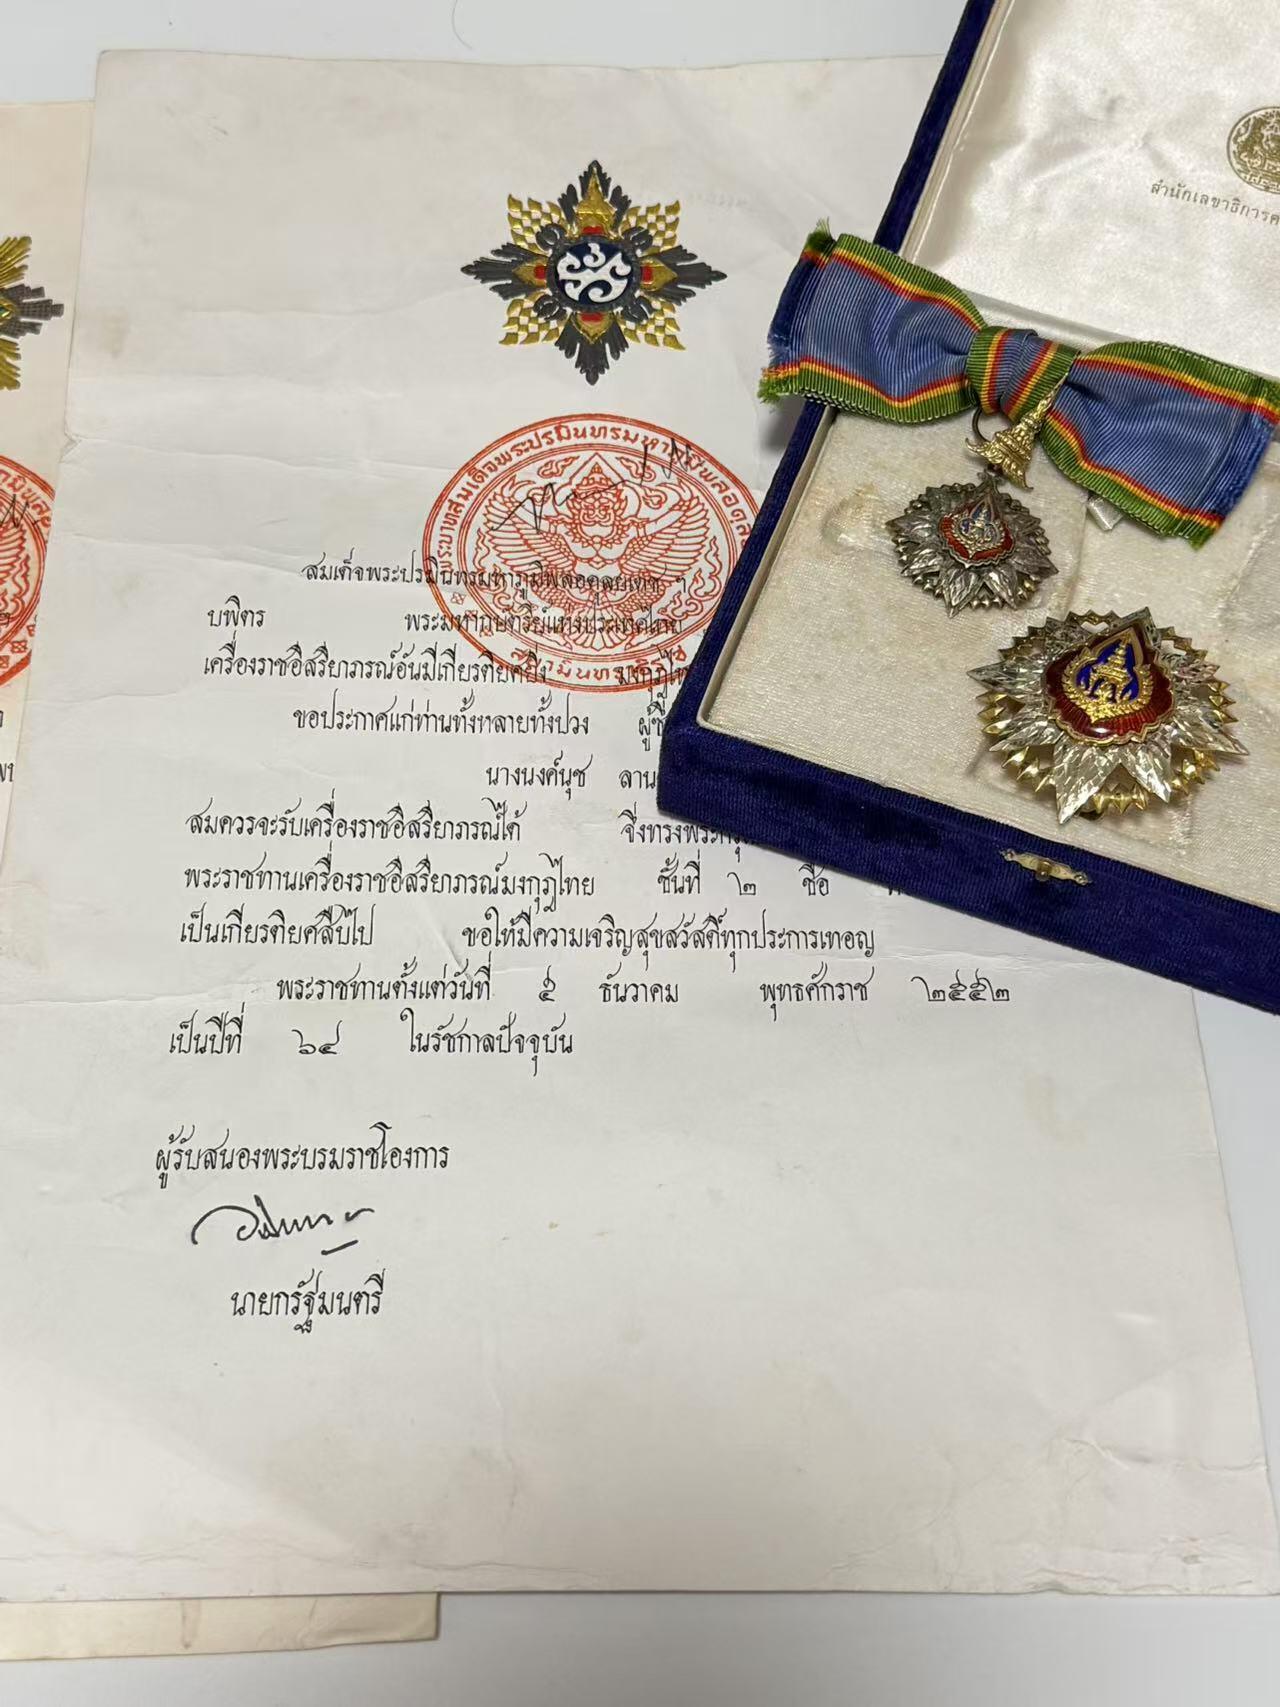 สำนักเลขาธิการค
สมเด็จพระปรมินทรมหาภูมิพลอดุลยเดช ฯ
บพิตร พระมหากษัตริย์แห่งประเทศไทย
เครื่องราชอิสริยาภรณ์อันมีเกียรติยศยิ่ง มงกุฎไท
ขอประกาศแก่ท่านทั้งหลายทั้งปวง ผู้ซึ่
นางนงค์นุช ลาน
สมควรจะรับเครื่องราชอิสริยาภรณ์ได้ จึงทรงพระกรุ
พระราชทานเครื่องราชอิสริยาภรณ์มงกุฎไทย ชั้นที่ ๒ ชื่อ
เป็นเกียรติยศสืบไป ขอให้มีความเจริญสุขสวัสดิ์ทุกประการเทอญ
พระราชทานตั้งแต่วันที่ ๕ ธันวาคม พุทธศักราช ๒๕๕๒
เป็นปีที่ ๖๔ ในรัชกาลปัจจุบัน
ผู้รับสนองพระบรมราชโองการ
นายกรัฐมนตรี